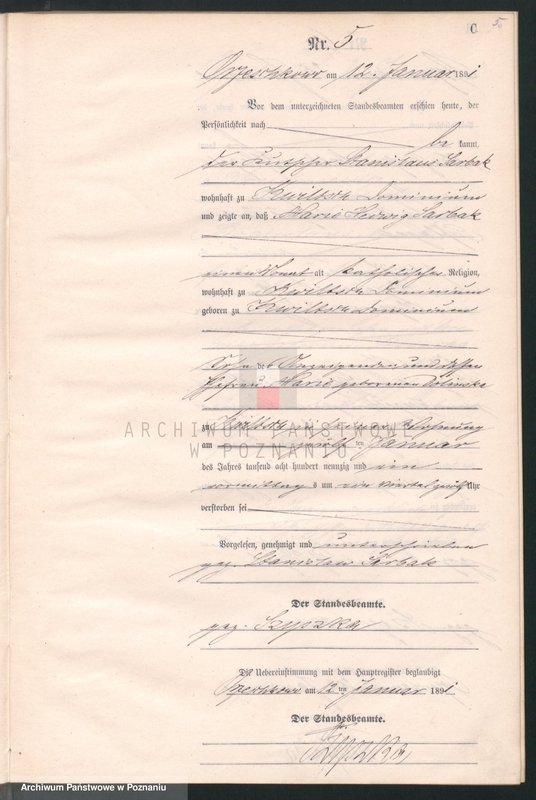 C 5
Nr. 5
Orzeschkowo am 12. Januar 1891
Vor dem unterzeichneten Standesbeamten erschien heute, der
Persönlichkeit nach
be kannt,
der Kutscher Stanislaus Sarbak
wohnhaft zu Kwiltsch Dominium
und zeigte an, daß Marie Hedwig Sarbak
einen Monat alt katholischer Religion,
wohnhaft zu Kwiltsch Dominium
geboren zu Kwiltsch Dominium
des Anzeigenden und dessen
Ehefrau Marie geborenen
zu Kwiltsch in seiner Wohnung
am ten Januar
des Jahres tausend acht hundert neunzig und ein
vormittag s um ein viertel Uhr
verstorben sei
Vorgelesen, genehmigt und unterschrieben
gez. Stanislaw Sarbak
Der Standesbeamte.
gez. Szyszka
Die Uebereinstimmung mit dem Hauptregister beglaubigt
Orzeschkowo am 12 ten Januar 1891
Der Standesbeamte.
Szyszka
ARCHIWUM PAŃSTWOWE
W POZNANIU
Archiwum Państwowe w Poznaniu